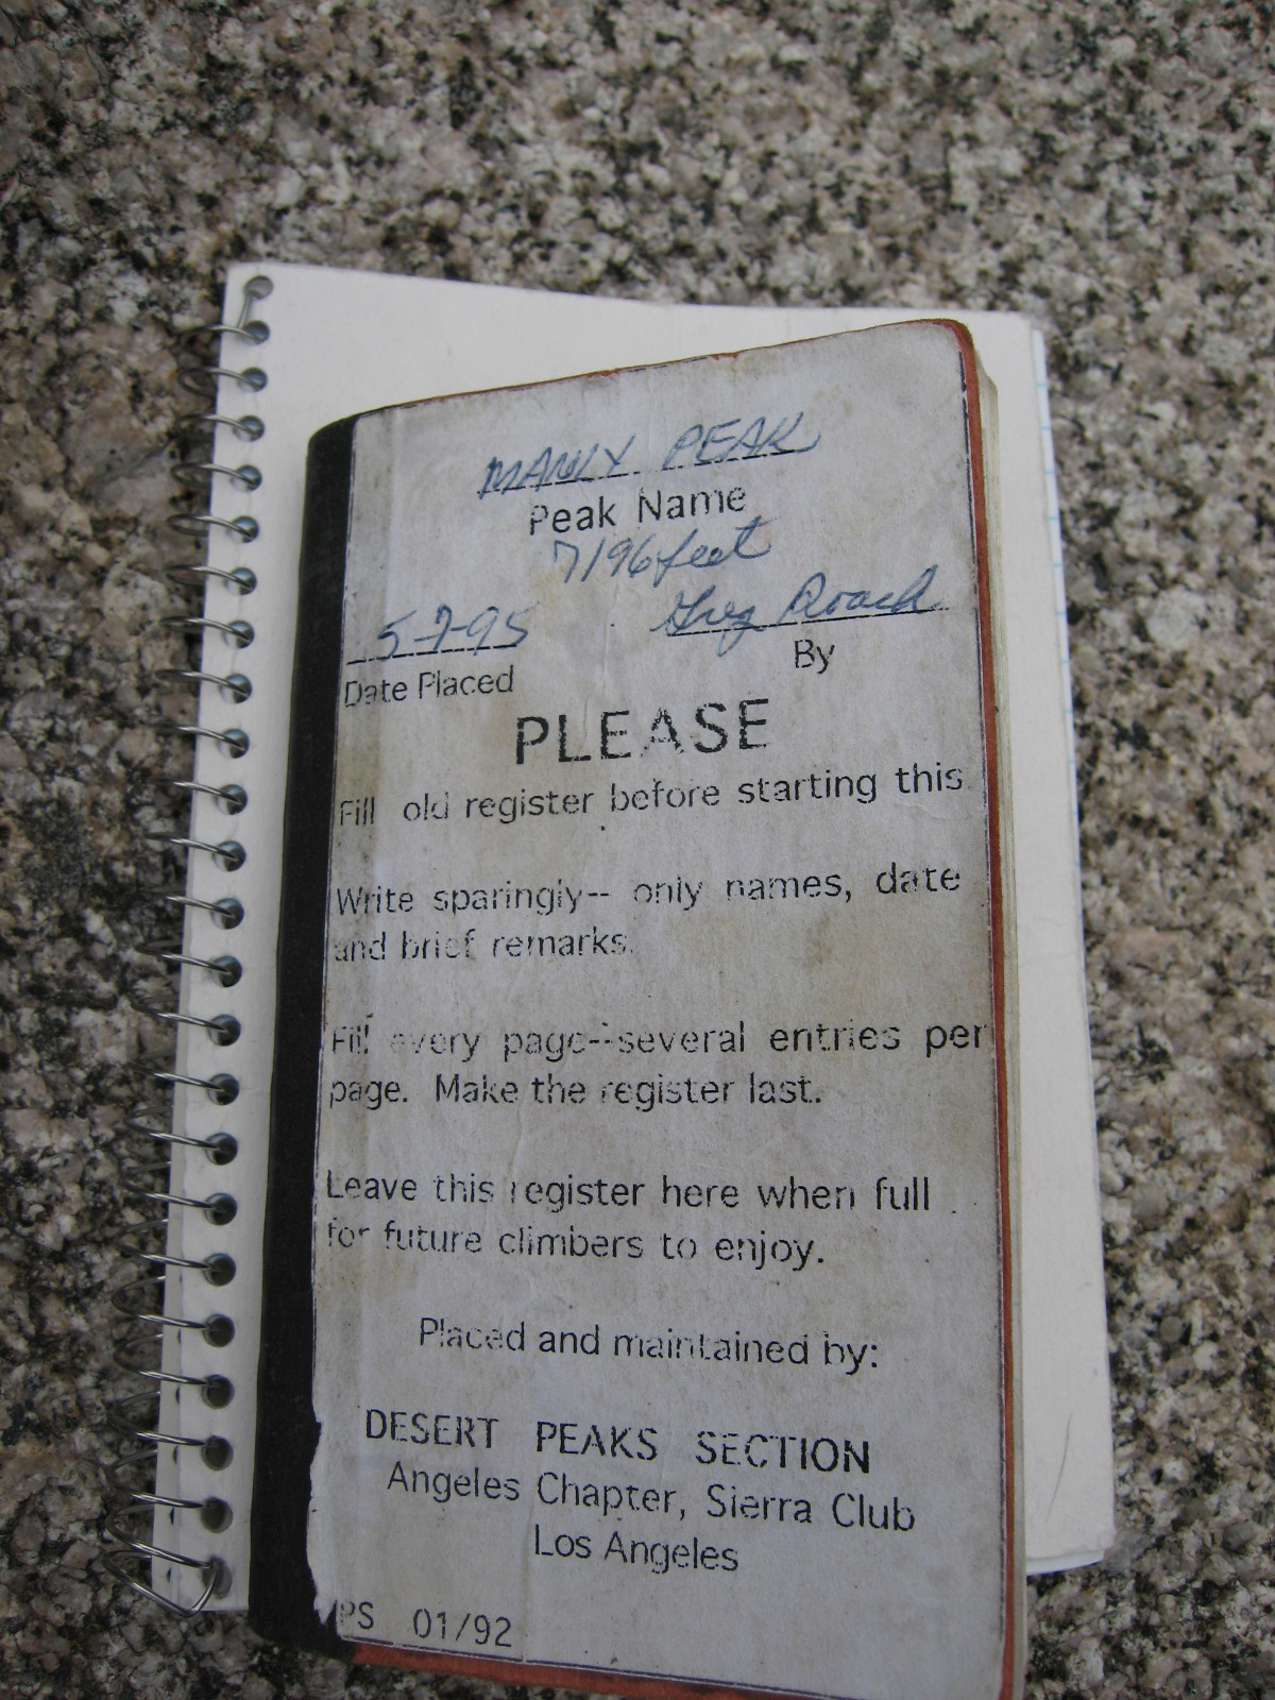 MANLY PEAK
Peak Name
7196 feet
5-7-95 Greg Roach
Date Placed By
PLEASE
Fill old register before starting this
Write sparingly-- only names, date
and brief remarks.
Fill every page--several entries per
page. Make the register last.
Leave this register here when full
for future climbers to enjoy.
Placed and maintained by:
DESERT PEAKS SECTION
Angeles Chapter, Sierra Club
Los Angeles
PS 01/92